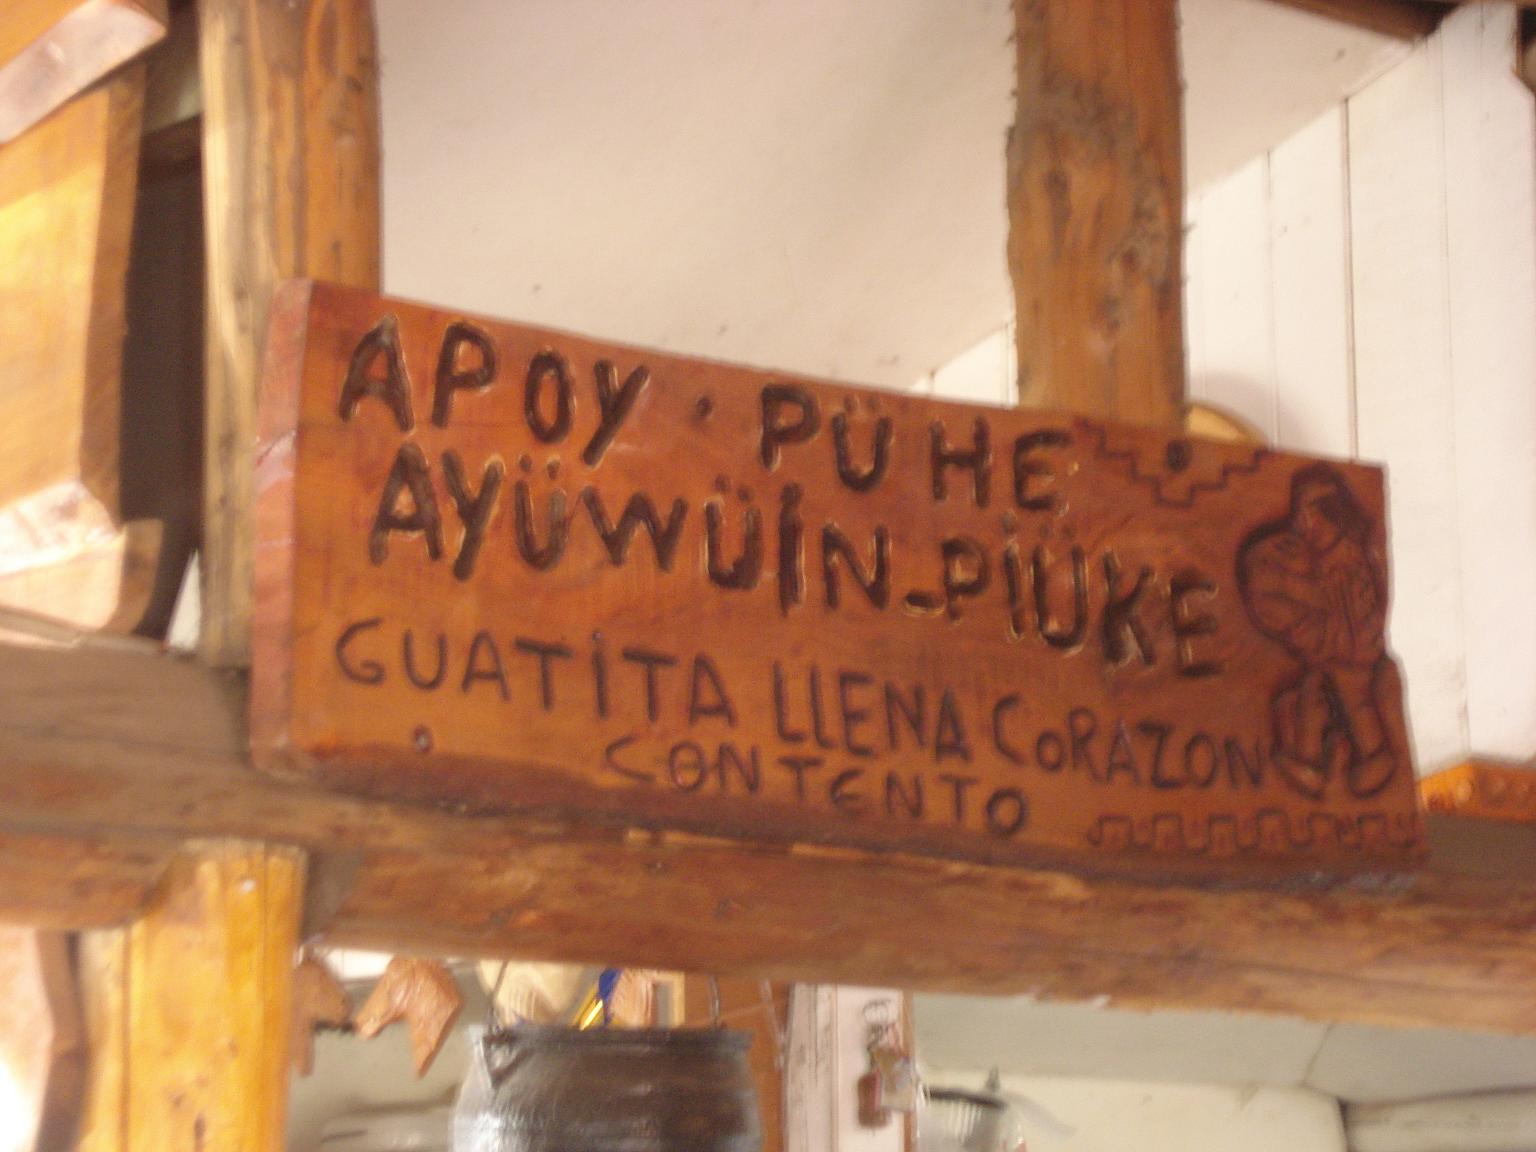 APOY · PÜHE
AYÜWÜIN-PIÜKE
GUATITA LLENA CORAZON
CONTENTO